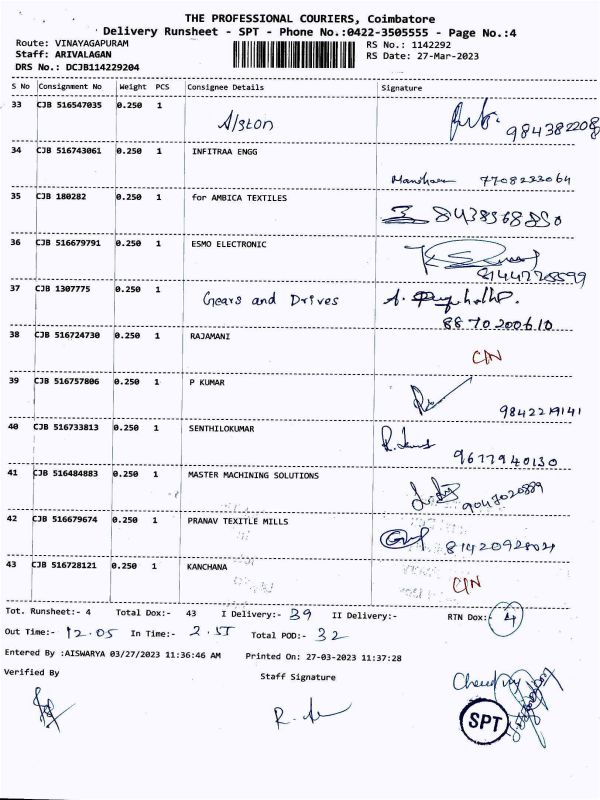 THE PROFESSIONAL COURIERS, Coimbatore
Delivery Runsheet - SPT - Phone No.:0422-3505555 - Page No.:4
Route: VINAYAGAPURAM RS No.: 1142292
Staff: ARIVALAGAN RS Date: 27-Mar-2023
DRS No.: DCJB114229204
S No Consignment No Weight PCS Consignee Details Signature
33 CJB 516547035 0.250 1 Alston 984382208
34 CJB 516743061 0.250 1 INFITRAA ENGG 7708223064
35 CJB 180282 0.250 1 for AMBICA TEXTILES 8438568850
36 CJB 516679791 0.250 1 ESMO ELECTRONIC
37 CJB 1307775 0.250 1 Gears and Drives
8870200610
38 CJB 516724730 0.250 1 RAJAMANI C/N
39 CJB 516757806 0.250 1 P KUMAR 9842219141
40 CJB 516733813 0.250 1 SENTHILOKUMAR 9677940130
41 CJB 516484883 0.250 1 MASTER MACHINING SOLUTIONS 9047020889
42 CJB 516679674 0.250 1 PRANAV TEXITLE MILLS
43 CJB 516728121 0.250 1 KANCHANA C/N
Tot. Runsheet:- 4 Total Dox:- 43 I Delivery:- 39 II Delivery:- RTN Dox:- 4
Out Time:- 12.05 In Time:- 2.55 Total POD:- 32
Entered By :AISWARYA 03/27/2023 11:36:46 AM Printed On: 27-03-2023 11:37:28
Verified By Staff Signature
SPT